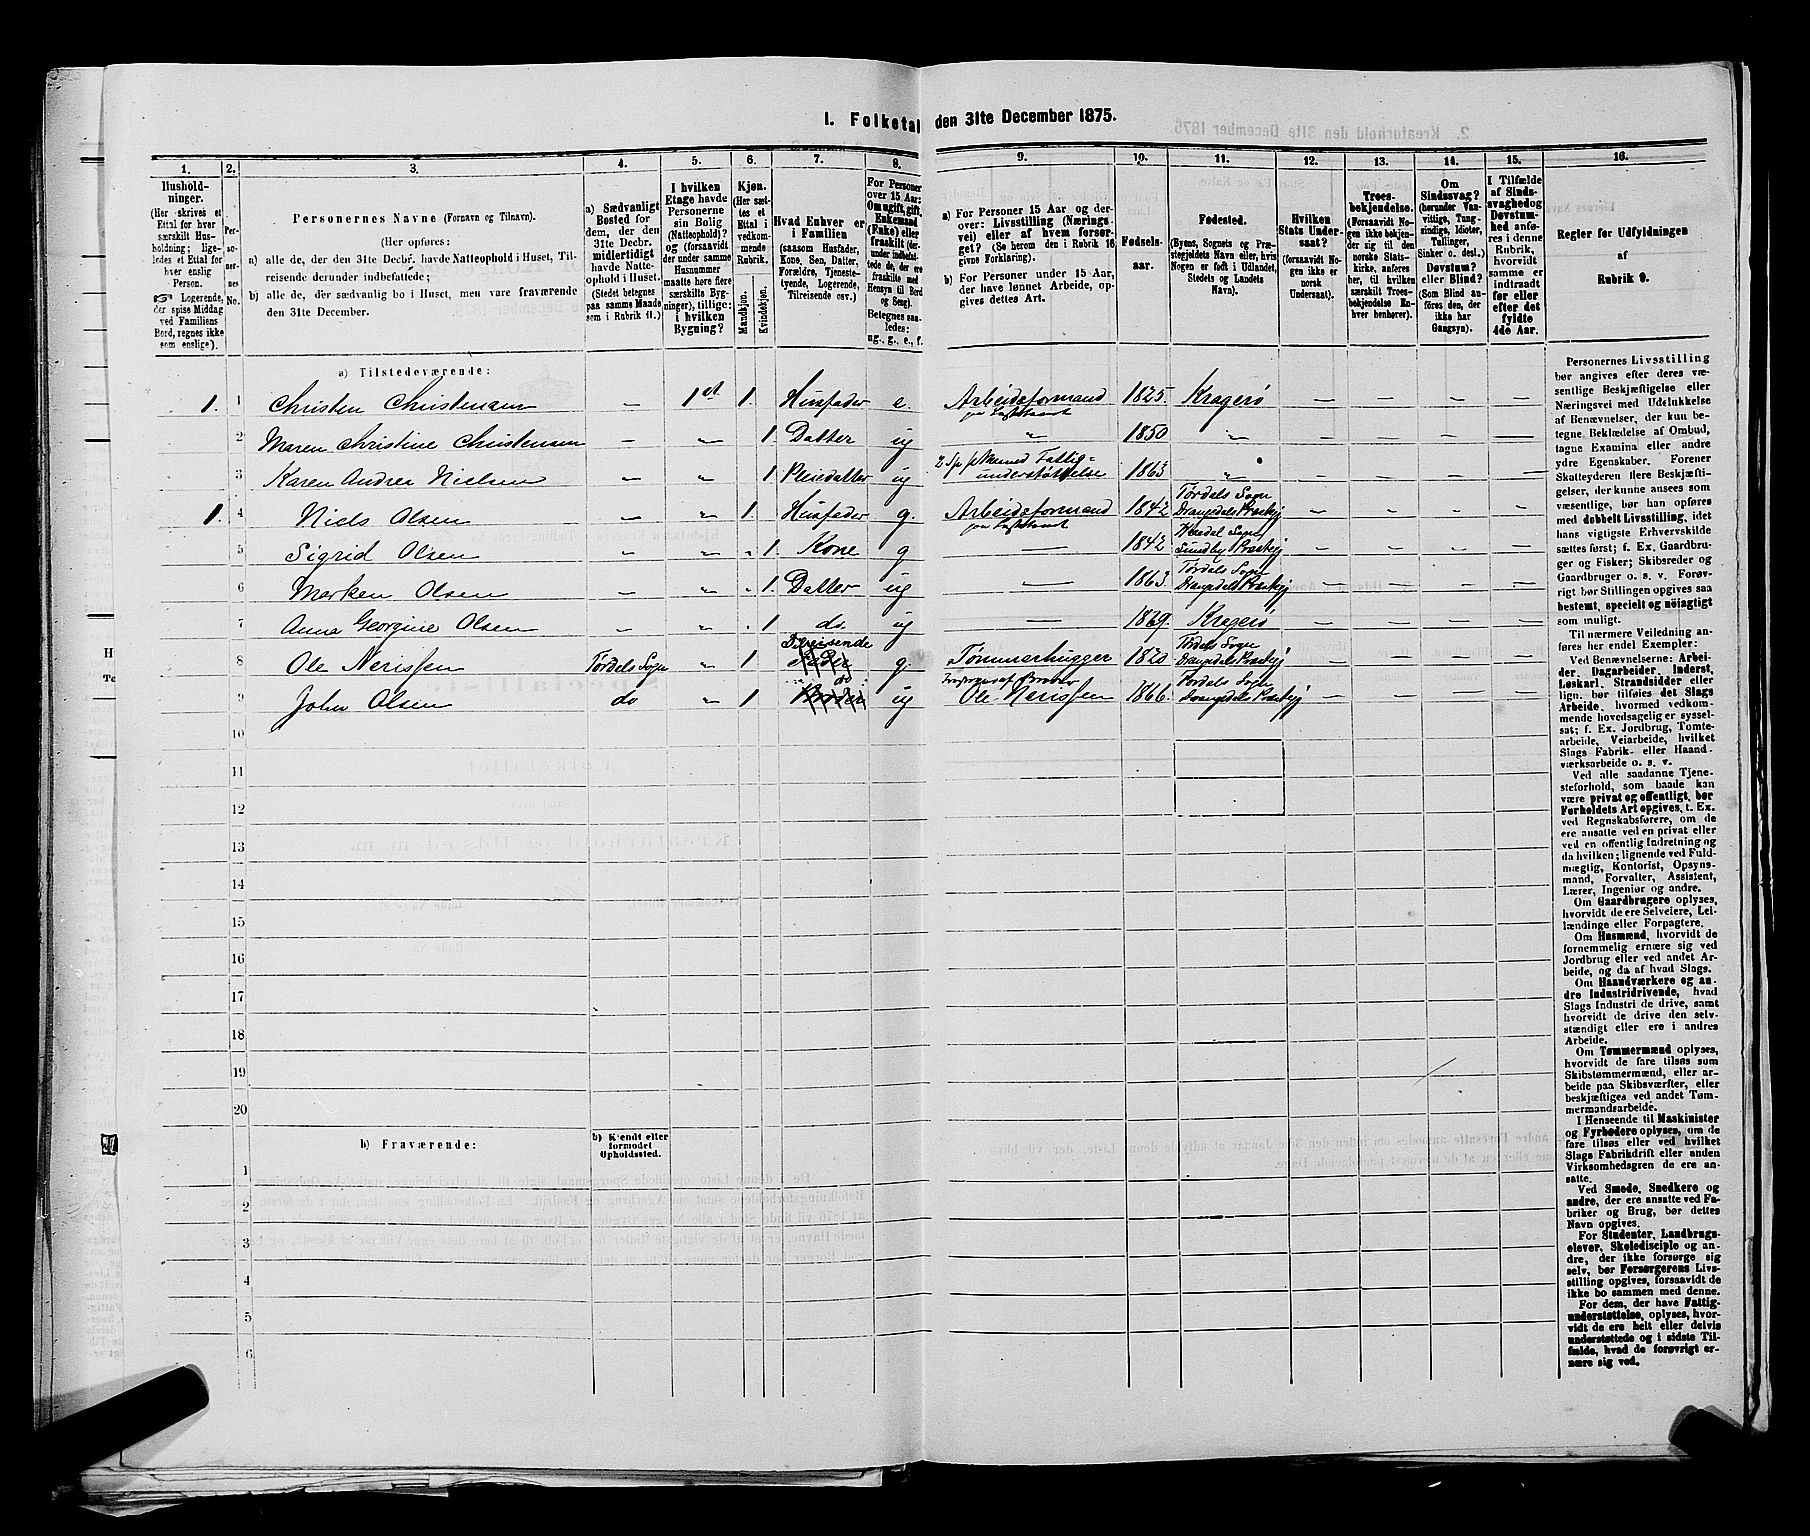 1. Folketal den 31te December 1875.
1. 2. 3. 4. 5. 6. 7. 8. 9. 10. 11. 12. 13. 14. 15. 16.
Hushold-
ninger.
(Her skrives et
Ettal for hver
særskilt Hus-
holdning; lige-
ledes et Ettal for
hver enslig
Person.
☞ Logerende,
der spise Middag
ved Familiens
Bord, regnes ikke
som enslige).
Per-
so-
ner-
nes
No.
Personernes Navne (Fornavn og Tilnavn).
(Her opføres:
a) alle de, der den 31te Decbr. havde Natteophold i Huset, Til-
reisende derunder indbefattede;
b) alle de, der sædvanlig bo i Huset, men vare fraværende
den 31te December.
a) Sædvanligt
Bosted for
dem, der den
31te Decbr.
midlertidigt
havde Natte-
ophold i Huset.
(Stedet betegnes
paa samme Maade
som i Rubrik 11.)
I hvilken
Etage havde
Personerne
sin Bolig
(Natteophold)?
og (forsaavidt
der under samme
Husnummer
maatte høre flere
særskilte Byg-
ninger), tillige:
i hvilken
Bygning?
Kjøn.
(Her sæt-
tes et
Ettal i
vedkom-
mende
Rubrik.
Mandkjøn.
Kvindekjøn.
Hvad Enhver er
i Familien
(saasom Husfader,
Kone, Søn, Datter,
Forældre, Tjeneste-
tyende, Logerende,
Tilreisende osv.)
For Personer
over 15 Aar:
Om ugift, gift,
Enkemand
(Enke) eller
fraskilt (der-
under indbefat-
tede de, der ere
fraskilte med
Hensyn til Bord
og Seng).
Betegnes saa-
ledes:
ug., g., e., f.
a) For Personer 15 Aar og der-
over: Livsstilling (Nærings-
vei) eller af hvem forsør-
get? (Se herom den i Rubrik 16
givne Forklaring).
b) For Personer under 15 Aar,
der have lønnet Arbeide, op-
gives dettes Art.
Fødsels-
aar.
Fødested.
(Byens, Sognets og Præ-
stegjeldets Navn eller, hvis
Nogen er født i Udlandet,
Stedets og Landets
Navn).
Hvilken
Stats Under-
saat?
(forsaavidt No-
gen ikke er
norsk
Undersaat).
Troes-
bekjendelse.
(Forsaavidt No-
gen ikke bekjen-
der sig til den
norske Stats-
kirke, anføres
her, til hvilken
særskilt Troes-
bekjendelse En-
hver henhører).
Om
Sindssvag?
(herunder Van-
vittige, Tung-
sindige, Idioter,
Tullinger,
Sinker o. desl.)
Døvstum?
eller Blind?
(Som Blind an-
føres den, der
ikke har
Gangsyn).
I Tilfælde
af Sinds-
svaghed og
Døvstum-
hed anfø-
res i denne
Rubrik,
hvorvidt
samme er
indtraadt
før eller
efter det
fyldte
4de Aar.
Regler for Udfyldningen
af
Rubrik 9.
a) Tilstedeværende:
1. 1 Christen Christensen – 1 st 1. Husfader e. Arbeidsformand 1825. Kragerø – – – –
2 Maren Christine Christensen – " 1. Datter ug " 1850 " – – – –
3 Karen Andrea Nielsen – " 1 Pleiedatter ug Fattig=
understøttelse 1863 " – – – –
1. 4 Niels Olsen – " 1. Husfader g. Arbeidsformand 1842 Tørdals Sogn
Drangedals Præstegj – – – –
5 Sigrid Olsen " " 1. Kone g — 1842 – – – –
6 Marken Olsen " " 1. Datter ug — 1863. Tørdals Sogn
Drangedals Præstegj – – – –
7 Anna Georgine Olsen – " 1 do. ug — 1869. Kragerø – – – –
8 Ole Nerissen Tørdals Sogn " 1 Tilreisende
Fader g. Tømmerhugger 1820 Tørdals Sogn
Drangedals Præstegj – – – –
9 John Olsen do " 1 do
ug Forsørges af
Ole Nerissen 1866. Tørdals Sogn
Drangedals Præstegj – – – –
10
11
12
13
14
15
16
17
18
19
20
b) Fraværende:
b) Kjendt eller
formodet
Opholdssted.
1
2
3
4
5
6
Personernes Livsstilling
bør angives efter deres væ-
sentlige Beskjæftigelse eller
Næringsvei med Udelukkelse
af Benævnelser, der kun be-
tegne Beklædelse af Ombud,
tagne Examina eller andre
ydre Egenskaber. Forener
Skatteyderen flere Beskjæfti-
gelser, der kunne ansees som
væsentlige, bør han opføres
med dobbelt Livsstilling, idet
hans vigtigste Erhvervskilde
sættes først; f. Ex. Gaardbru-
ger og Fisker; Skibsreder og
Gaardbruger o. s. v. Forøv-
rigt bør Stillingen opgives saa
bestemt, specielt og nöiagtigt
som muligt.
Til nærmere Veiledning an-
føres her endel Exempler:
Ved Benævnelserne: Arbei-
der, Dagarbeider, Inderst,
Løskarl, Strandsidder eller
lign. bør tilføies det Slags
Arbeide, hvormed vedkom-
mende hovedsagelig er syssel-
sat; f. Ex. Jordbrug, Tomte-
arbeide, Veiarbeide, hvilket
Slags Fabrik- eller Haand-
værksarbeide o. s. v.
Ved alle saadanne Tjene-
steforhold, som baade kan
være privat og offentligt, bør
Forholdets Art opgives, t. Ex.
ved Regnskabsførere, om de
ere ansatte ved en privat eller
ved en offentlig Indretning og
da hvilken; lignende ved Fuld-
mægtig, Kontorist, Opsyns-
mand, Forvalter, Assistent,
Lærer, Ingeniør og andre.
Om Gaardbrugere oplyses,
hvorvidt de ere Selveiere, Lei-
lændinge eller Forpagtere.
Om Husmænd, hvorvidt de
fornemmelig ernære sig ved
Jordbrug eller ved andet Ar-
beide, og da af hvad Slags.
Om Haandværkere og an-
dre Industridrivende, hvad
Slags Industri de drive, samt
hvorvidt de drive den selv-
stændigt eller ere i andres
Arbeide.
Om Tømmermænd oplyses,
hvorvidt de fare tilsøs som
Skibstømmermænd, eller ar-
beide paa Skibsværfter, eller
beskjæftiges ved andet Tøm-
mermandsarbeide.
I Henseende til Maskinister
og Fyrbødere oplyses, om de
fare tilsøs eller ved hvilket
Slags Fabrikdrift eller anden
Virksomhedsgren de ere an-
satte.
Ved Smede, Snedkere og
andre, der ere ansatte ved Fa-
briker og Brug, bør dettes
Navn opgives.
For Studenter, Landbrugs-
elever, Skoledisciple og an-
dre, der ikke forsørge sig
selv, bør Forsørgerens Livs-
stilling opgives, forsaavidt de
ikke bo sammen med denne.
For dem, der have Fattig-
understøttelse, oplyses, hvor-
vidt de ere helt eller delvis
understøttede og i sidste Til-
fælde, hvad de forøvrigt er-
nære sig ved.